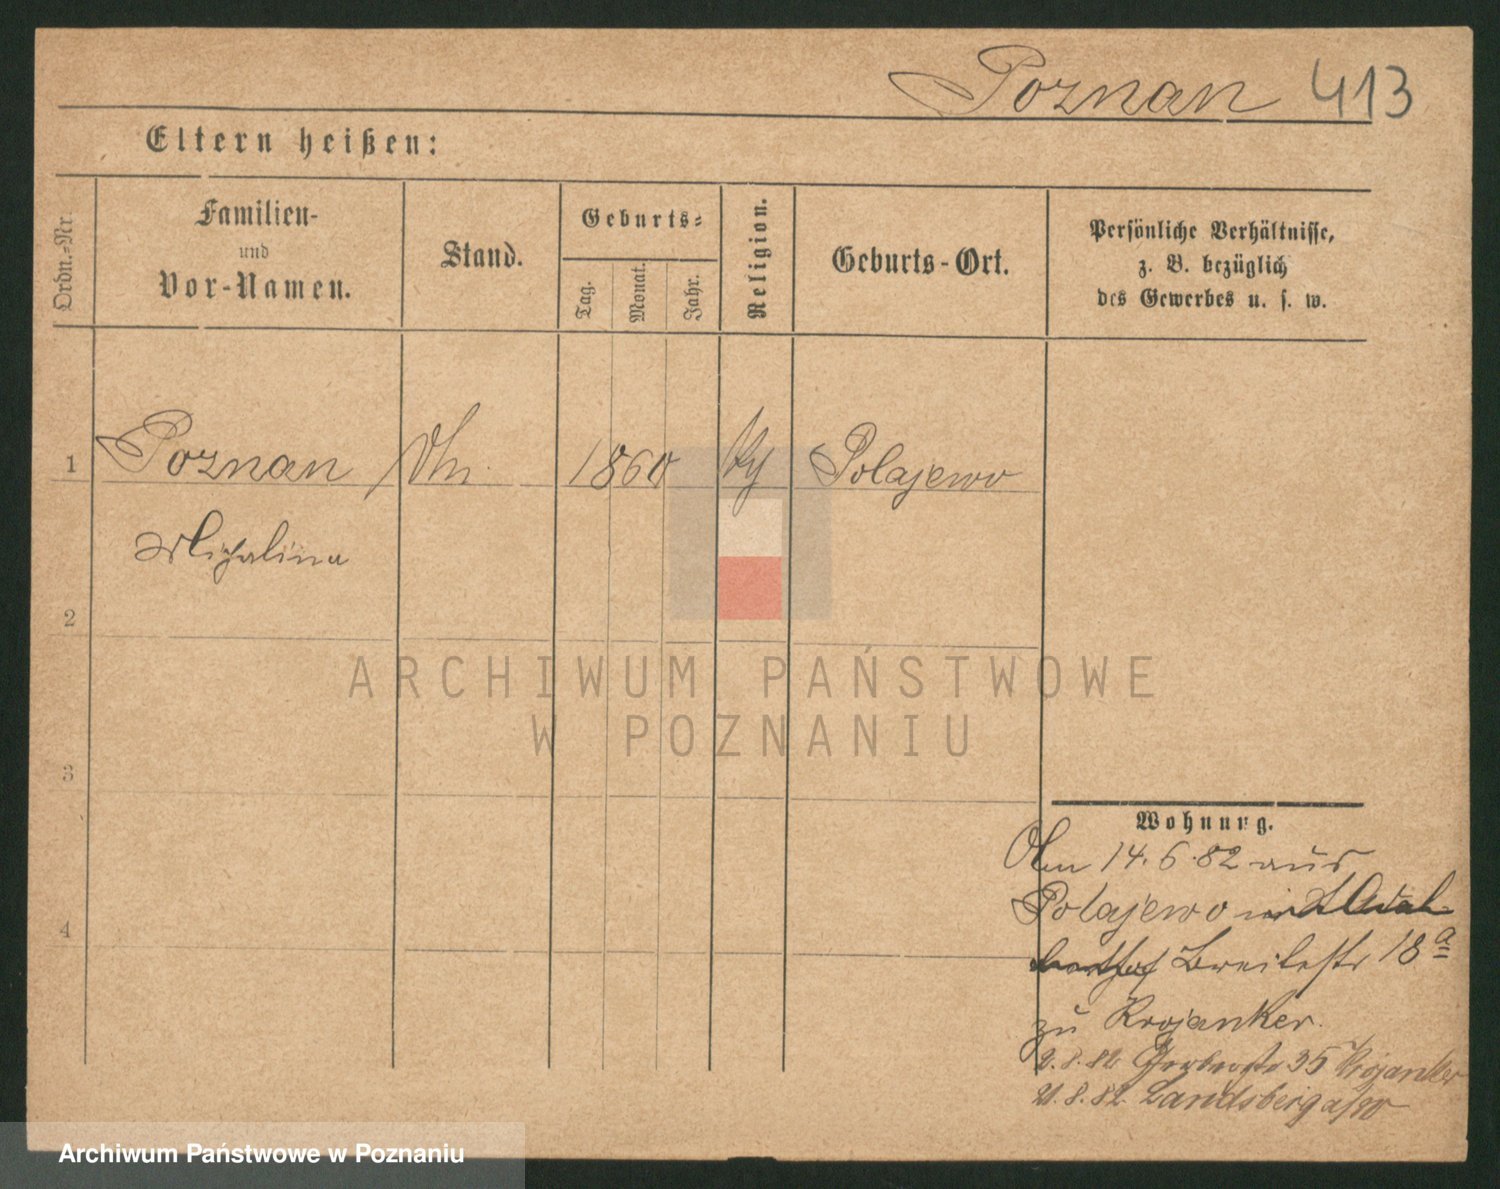 Poznan 413
Eltern heißen:
Ordn.-Nr.
Familien-
und
Vor-Namen.
Stand.
Geburts-
Tag.
Monat.
Jahr.
Religion.
Geburts-Ort.
Persönliche Verhältnisse,
z. B. bezüglich
des Gewerbes u. s. w.
1 Poznan 1860 Polajewo
Michalina
2
ARCHIWUM PAŃSTWOWE
W POZNANIU
3
Wohnung.
14.6.82 aus
4
Polajewo in
Breitestr 18 a
zu Krojanker.
2.8.82 Gerberstr 35 Krojanker
21.8.82 Landsberg a/W
Archiwum Państwowe w Poznaniu